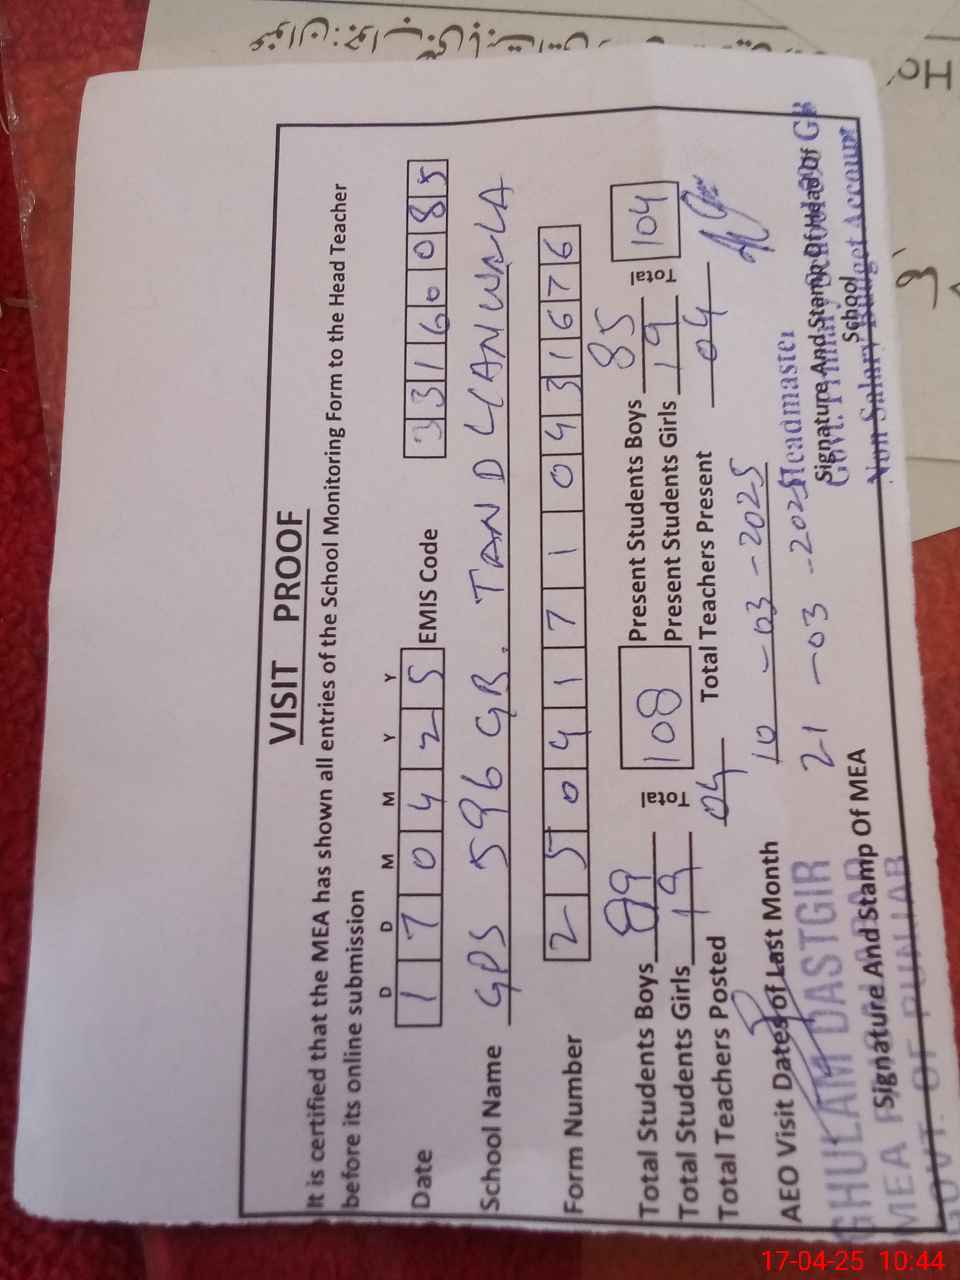 VISIT PROOF
It is certified that the MEA has shown all entries of the School Monitoring Form to the Head Teacher
before its online submission
D D M M Y Y
Date 1 7 0 4 2 5 EMIS Code 3 3 1 6 0 0 8 5
School Name GPS 596 GB. TAND LIANWALA
Form Number 2 5 0 4 1 7 1 1 0 4 3 1 6 7 6
Total Students Boys 89 Total 108 Present Students Boys 85 Total 104
Total Students Girls 19 Present Students Girls 19
Total Teachers Posted 04 Total Teachers Present 04
AEO Visit Dates of Last Month 10-03-2025
21-03-2025
GHULAM DASTGIR
Signature And Stamp Of MEA
MEA
GOVT. OF PUNJAB
Headmaster
Signature And Stamp Of Head Of
School
Govt. Primary
Non Salary Budget Account
17-04-25 10:44